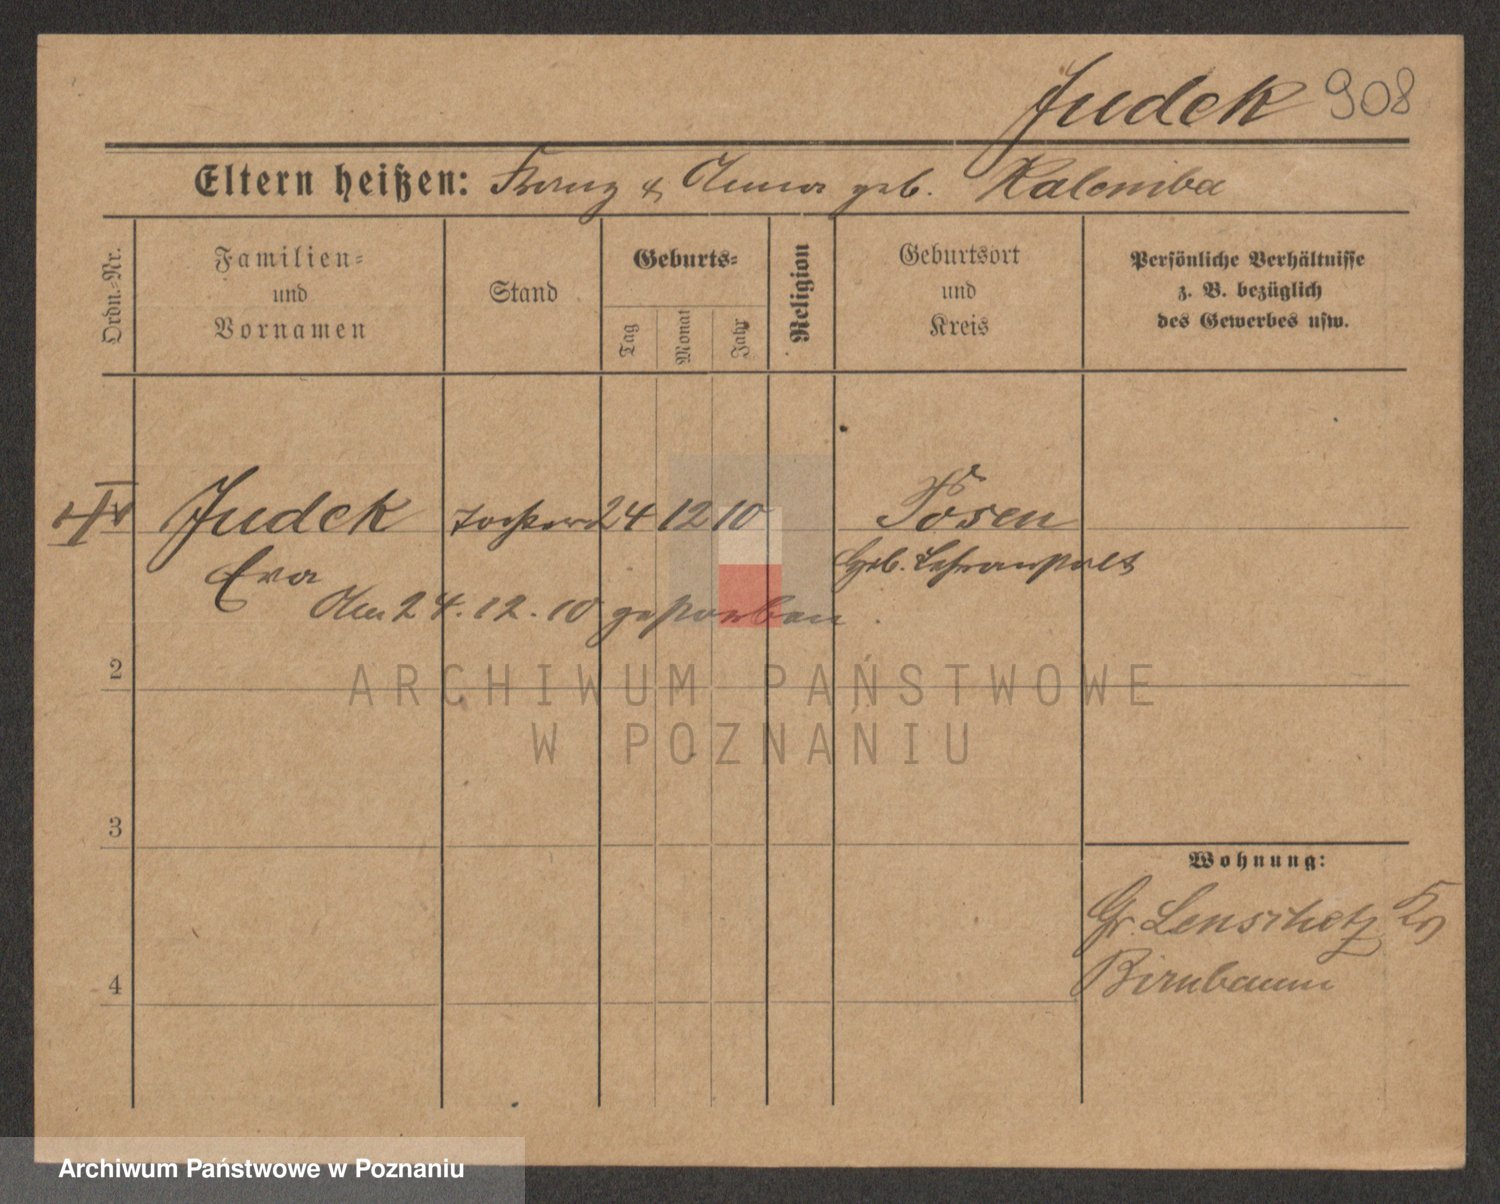 Judek 908
Eltern heißen: Franz & Anna geb. Kalemba
Ordn.-Nr.
Familien-
und
Vornamen
Stand
Geburts-
Tag
Monat
Jahr
Religion
Geburtsort
und
Kreis
Persönliche Verhältnisse
z. B. bezüglich
des Gewerbes usw.
Judek Tochter 24 12 10 Posen
Eva Geb. Lehranstalt
Am 24. 12. 10 gestorben.
2
3
4
Wohnung:
Gr. Lenschetz Kr
Birnbaum
ARCHIWUM PAŃSTWOWE
W POZNANIU
Archiwum Państwowe w Poznaniu